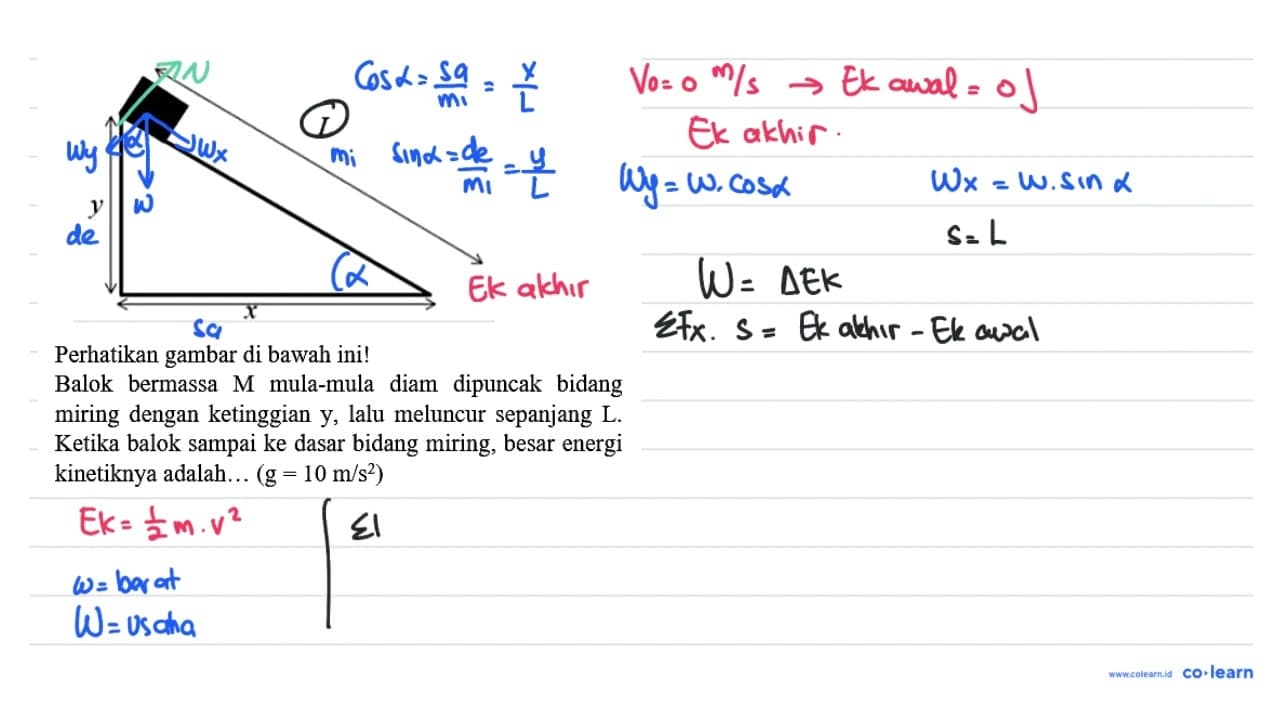 N
Cos α = sa/mi = x/L
I
Wy α Wx
mi sin α = de/mi = y/L
y w
de
(α
Ek akhir
x
sa
Perhatikan gambar di bawah ini!
Balok bermassa M mula-mula diam dipuncak bidang
miring dengan ketinggian y, lalu meluncur sepanjang L.
Ketika balok sampai ke dasar bidang miring, besar energi
kinetiknya adalah… (g = 10 m/s²)
Ek = 1/2 m . v²
w = berat
W = usaha
Σ1
Vo = 0 m/s → Ek awal = 0 J
Ek akhir .
Wy = w. cos α Wx = w. sin α
s = L
W = ΔEK
ΣFx. s = Ek akhir - Ek awal
www.colearn.id co·learn